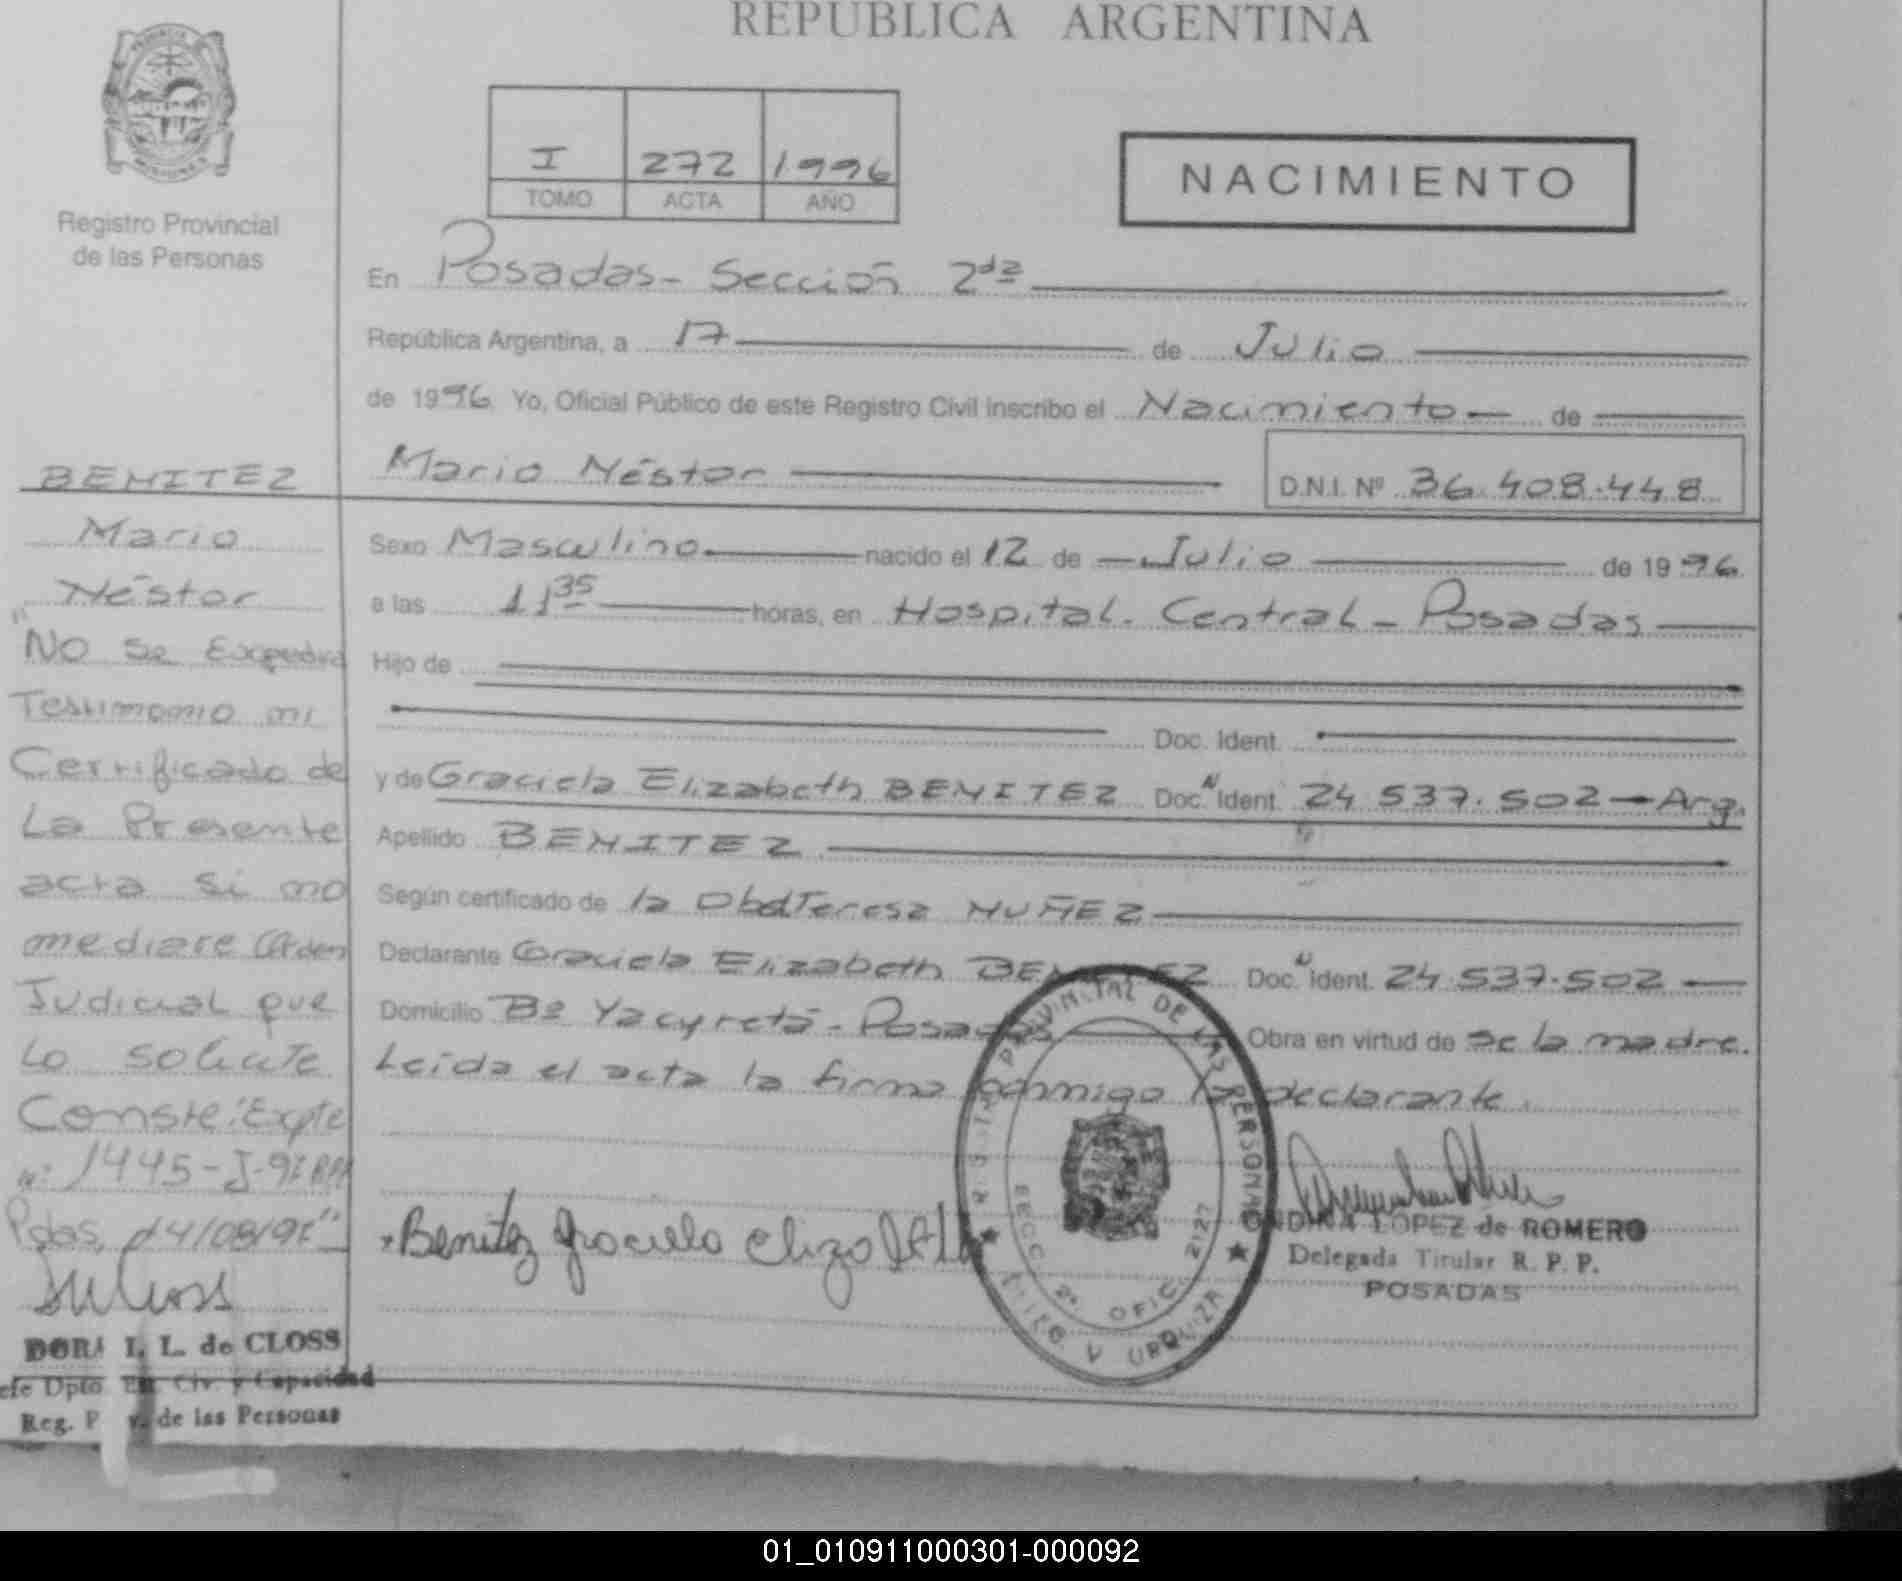 REPUBLICA ARGENTINA
PROVINCIA DE MISIONES
Registro Provincial
de las Personas
I 272 1996
TOMO ACTA AÑO
NACIMIENTO
En Posadas - Sección 2da
República Argentina, a 17 de Julio
de 1996 Yo, Oficial Público de este Registro Civil Inscribo el Nacimiento de
Mario Néstor D.N.I. Nº 36.408.448
Sexo Masculino nacido el 12 de Julio de 1996
a las 11 35 horas, en Hospital Central - Posadas
Hijo de
Doc. Ident.
y de Graciela Elizabeth BENITEZ Doc. Ident. 24 537.502 - Arg.
Apellido BENITEZ
Según certificado de la Obst Teresa NUÑEZ
Declarante Graciela Elizabeth BENITEZ Doc. Ident. 24.537.502
Domicilio Bº Yacyretá - Posadas Obra en virtud de Se la madre.
Leída el acta la firma conmigo la declarante.
Benitez Graciela Elizabeth
ONDINA LOPEZ de ROMERO
Delegada Titular R. P. P.
POSADAS
REGISTRO PROVINCIAL DE LAS PERSONAS
SECC. 2ª. OFIC. 2127
VILLA URQUIZA
BENITEZ
Mario
Néstor
"No Se Expedira
Testimonio ni
Certificado de
La Presente
acta Si no
mediare Orden
Judicial que
Lo Solicite
Conste: Expte
Nº: 1445-J-
Pdas, 14/08/
DORA I. L. de CLOSS
Jefe Dpto. Est. Civ. y Capacidad
Reg. Prov. de las Personas
01_010911000301-000092